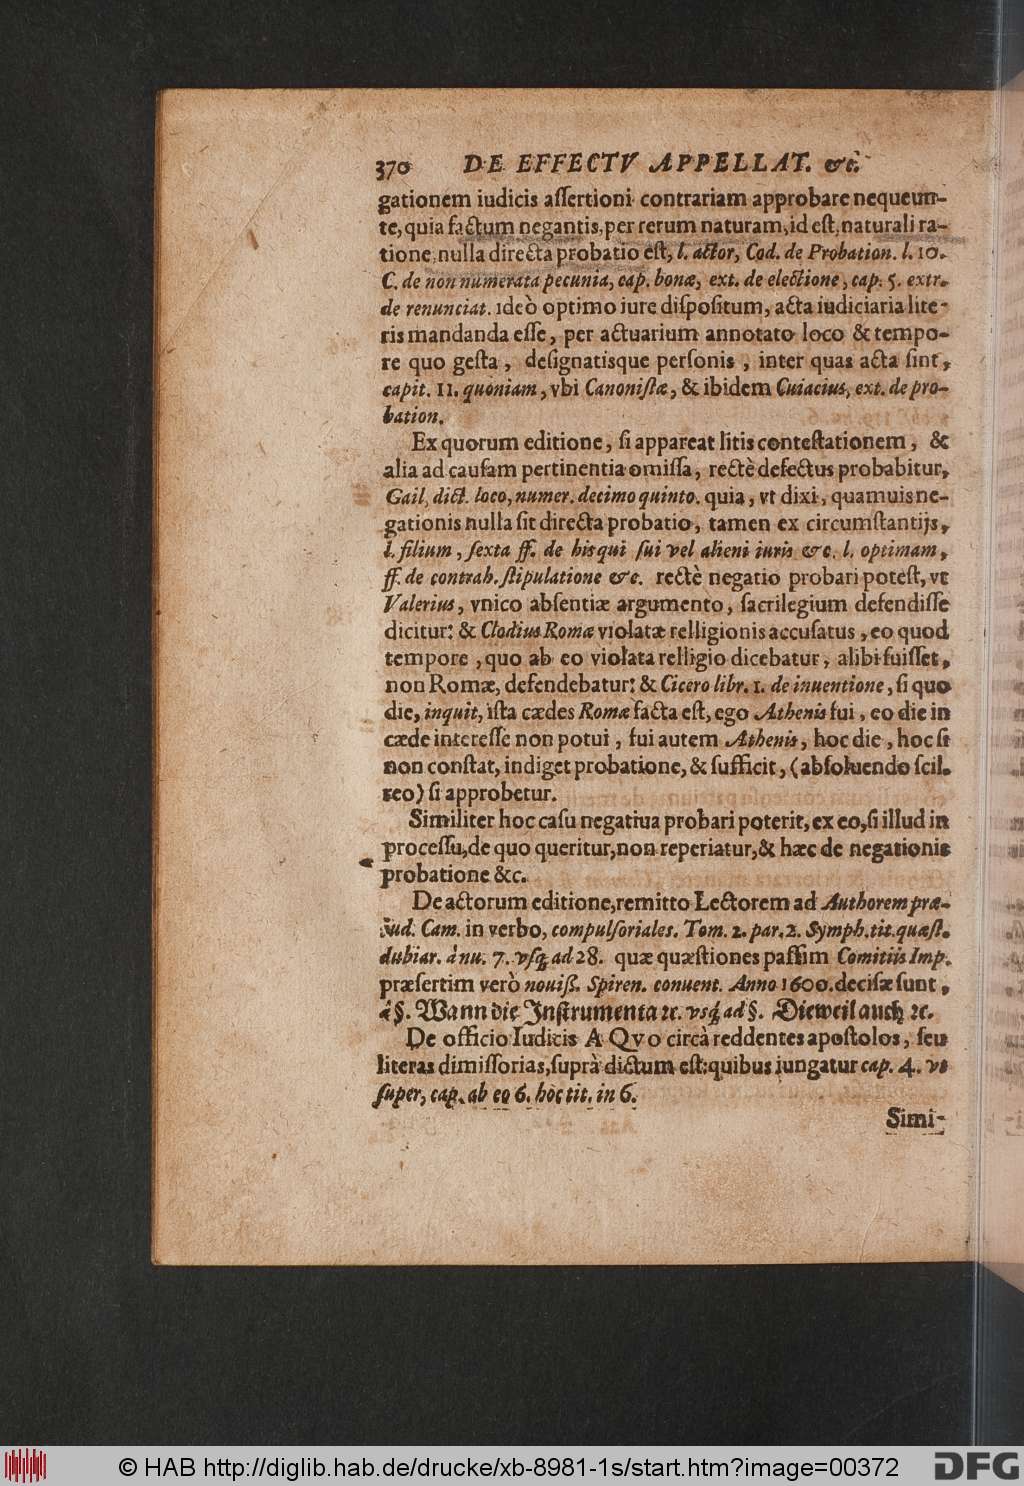 370 DE EFFECTV APPELLAT. &c̀.
gationem iudicis aſſertioni contrariam approbare nequeun-
te, quia factum negantis, per rerum naturam, id eſt, naturali ra-
tione, nulla directa probatio eſt, l. actor, Cod. de Probation. l. 10.
C. de non numerata pecunia, cap. bonæ, ext. de electione, cap. 5. extr.
de renunciat. ideò optimo iure diſpoſitum, acta iudiciaria lite-
ris mandanda eſſe, per actuarium annotato loco & tempo-
re quo geſta, deſignatisque perſonis, inter quas acta ſint,
capit. 11. quoniam, vbi Canoniſtæ, & ibidem Cuiacius, ext. de pro-
bation.
Ex quorum editione, ſi appareat litis conteſtationem, &
alia ad cauſam pertinentia omiſſa, rectè defectus probabitur,
Gail, dict. loco, numer. decimo quinto. quia, vt dixi, quamuis ne-
gationis nulla ſit directa probatio, tamen ex circumſtantijs,
l. filium, ſexta ff. de his qui ſui vel alieni iuris &c. l. optimam,
ff. de contrah. ſtipulatione &c. rectè negatio probari poteſt, vt
Valerius, vnico abſentiæ argumento, ſacrilegium defendiſſe
dicitur: & Clodius Romæ violatæ relligionis accuſatus, eo quod
tempore, quo ab eo violata relligio dicebatur, alibi fuiſſet,
non Romæ, defendebatur: & Cicero libr. 1. de inuentione, ſi quo
die, inquit, iſta cædes Romæ facta eſt, ego Athenis fui, eo die in
cæde intereſſe non potui, fui autem Athenis, hoc die, hoc ſi
non conſtat, indiget probatione, & ſufficit, (abſoluendo ſcil.
reo) ſi approbetur.
Similiter hoc caſu negatiua probari poterit, ex eo, ſi illud in
proceſſu, de quo queritur, non reperiatur, & hæc de negationis
probatione &c.
De actorum editione, remitto Lectorem ad Authorem præ-
iud. Cam. in verbo, compulſoriales. Tom. 2. par. 2. Symph. tit. quæſt.
dubiar. à nu. 7. vſq; ad 28. quæ quæſtiones paſſim Comitiis Imp.
præſertim verò nouiß. Spiren. conuent. Anno 1600. deciſæ ſunt,
à §. Wann die Jnſtrumenta ꝛc. vsq; ad §. Dieweil auch ꝛc.
De officio Iudicis A Qvo circà reddentes apoſtolos, ſeu
literas dimiſſorias, ſuprà dictum eſt: quibus iungatur cap. 4. vt
ſuper, cap. ab eo 6. hoc tit. in 6.
Simi-
© HAB http://diglib.hab.de/drucke/xb-8981-1s/start.htm?image=00372
DFG